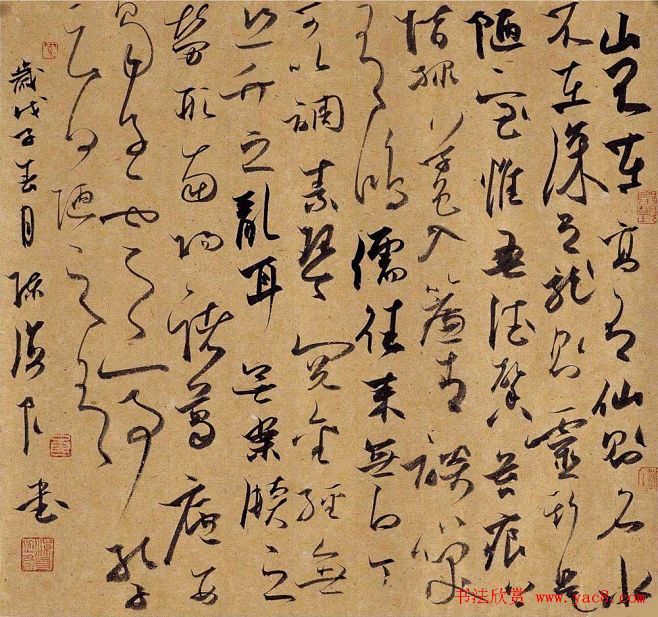 山不在高有仙則名水
不在深有龍則靈斯是
陋室惟吾德馨苔痕上
階綠草色入簾青談笑
有鴻儒往來無白丁
可以調素琴閱金經無
絲竹之亂耳無案牘之
勞形南陽諸葛廬西
蜀子雲亭孔子
云何陋之有
歲戊子春月 書
书法欣赏 www.yac8.com